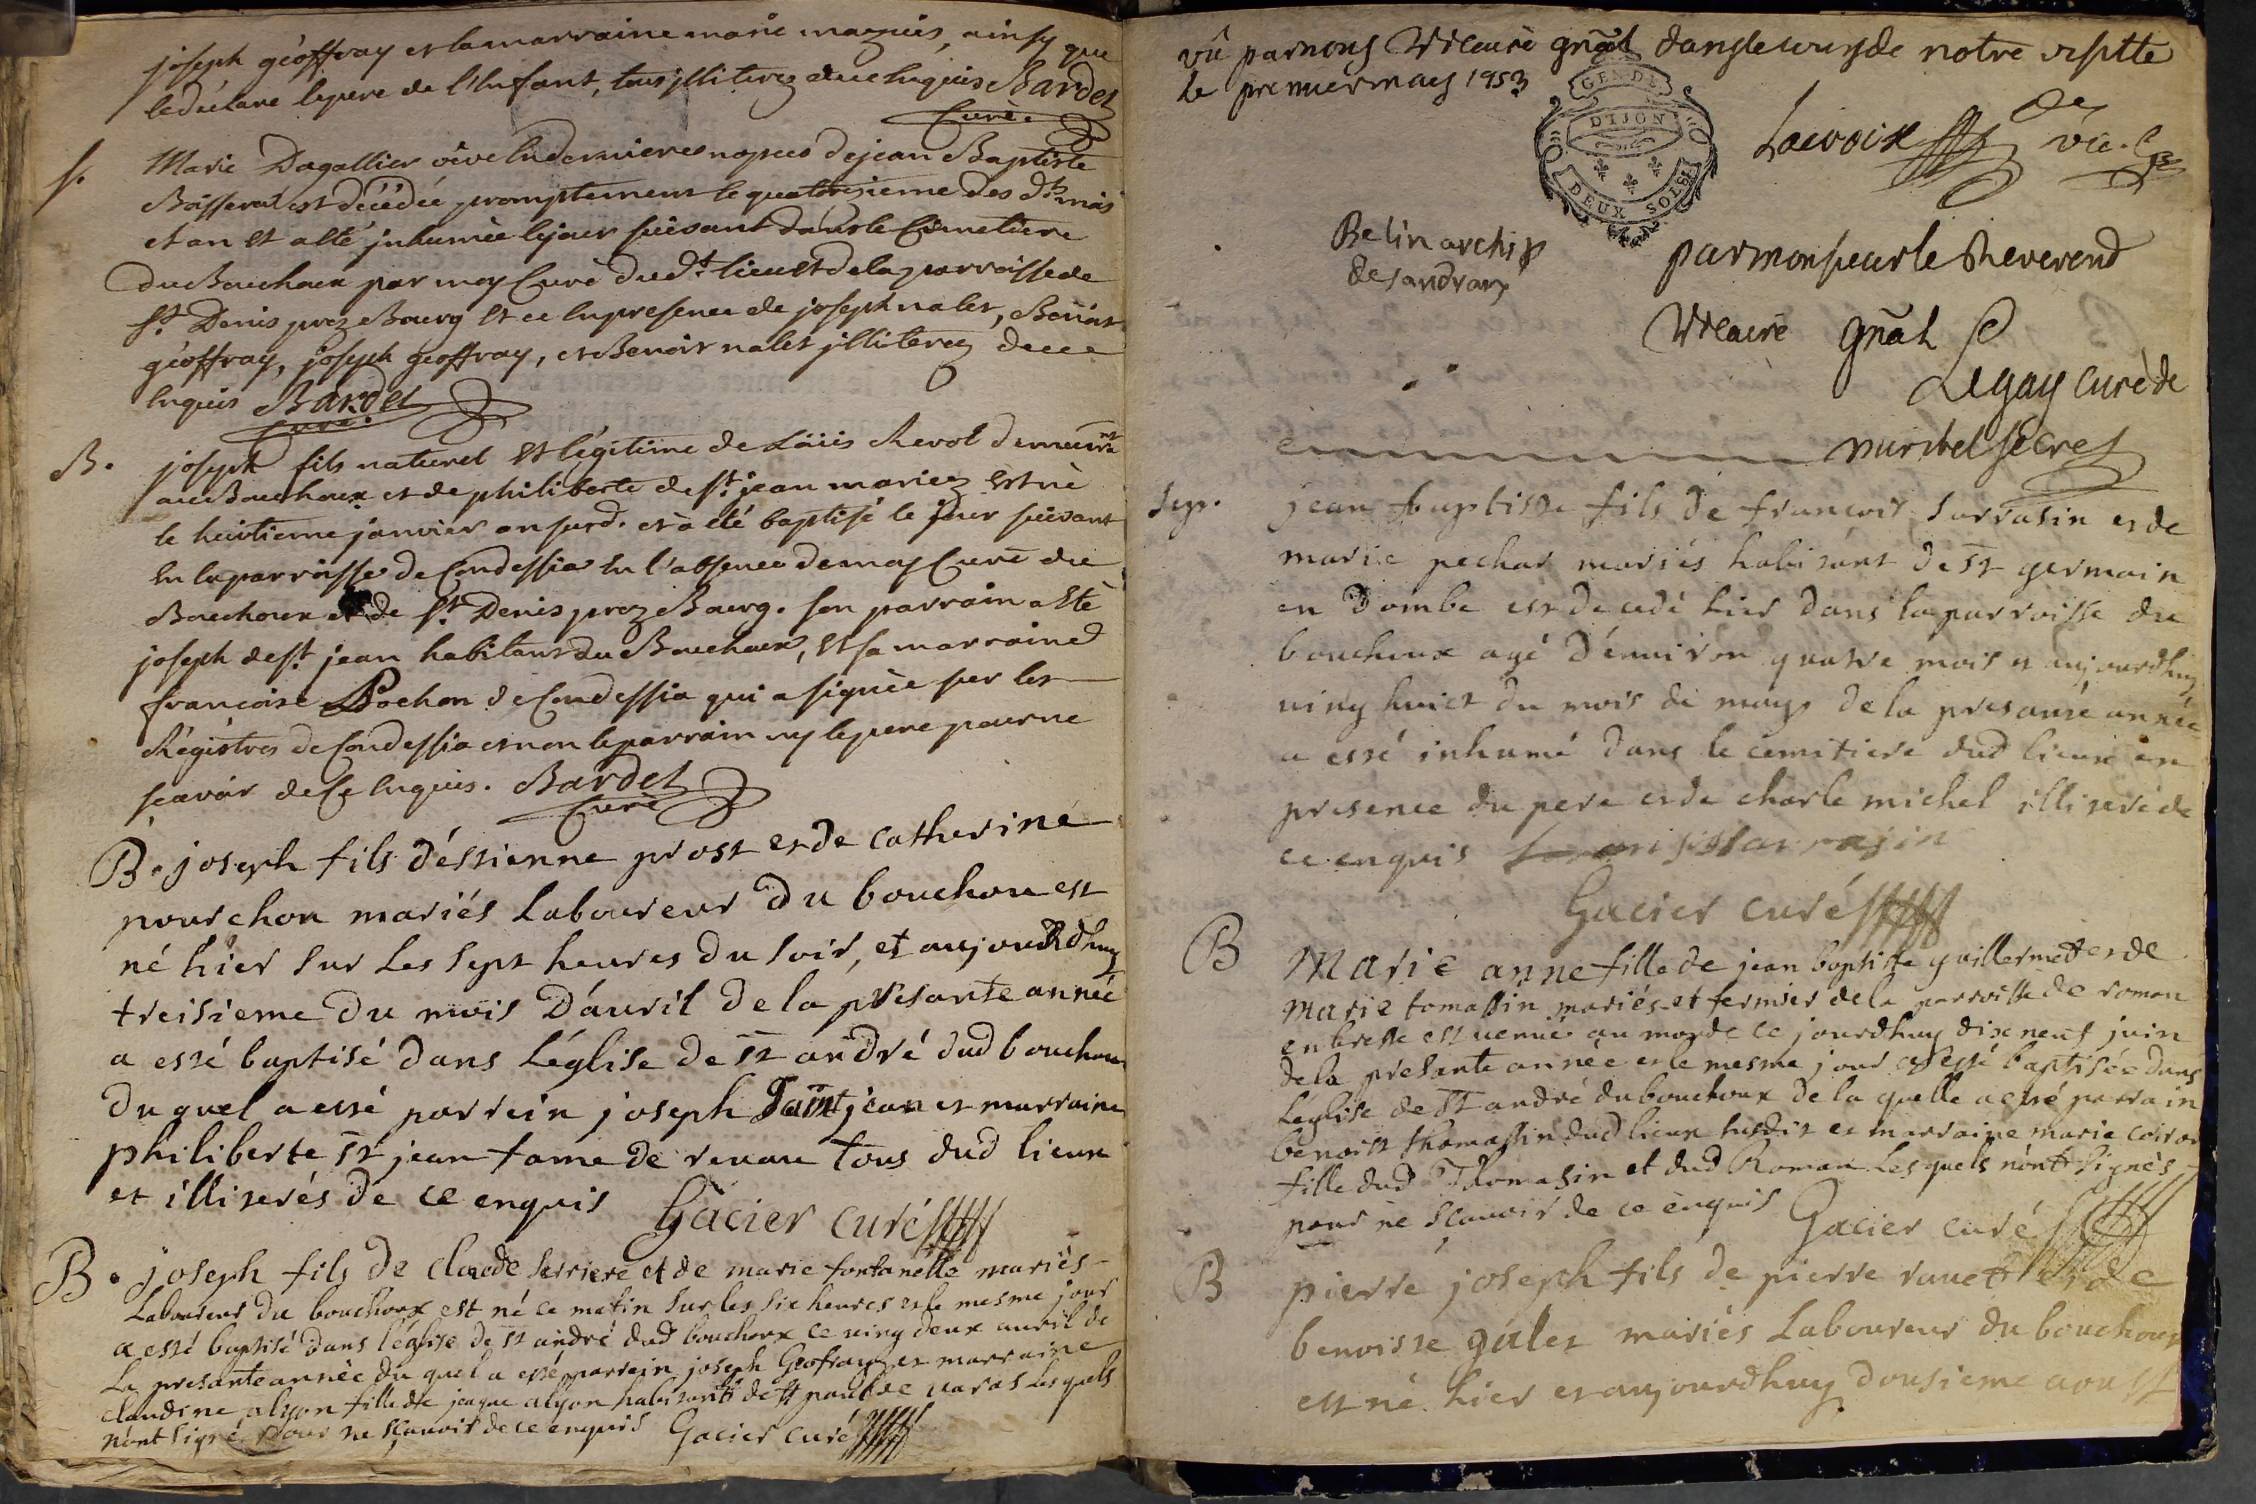 joseph géoffray et la marraine marie maguis, ainsy que
le déclare le pere de l'Enfant, tous jlliterez de ce Enquis Bardet
Curé.
S. Marie Dagallier véve En dernieres nopces de jean Baptiste
Boisserat est décédée promptement le quatorsieme des dts mois
et an Et a Eté jnhumée le jour suivant dans le Cimetiere
du Bouchoux par moy Curé du dt lieu et de la parroisse de
St Denis prez Bourg Et ce En presence de joseph nalet, Benoit
géoffray, joseph geoffray, et Benoit nalet jlliterez de ce
Enquis Bardet
Curé.
B. joseph fils naturel Et légitime de Loüis Revol demeurant
au Bouchoux et de philiberte de St jean mariez Est né
le huitieme janvier an susd. et a eté baptisé le jour suivant
En la parroisse de Condessia En l'absence de moy Curé du
Bouchoux et de St Denis prez Bourg. son parrain a Eté
joseph de St jean habitant du Bouchoux, Et sa marraine
francoise Pochon de Condessia qui a signée sur les
Régistres de Condessia et non le parrain ny le pere pour ne
scavoir de Ce Enquis. Bardet
Curé
B. joseph fils d'éstienne prost et de catherine
pourchou mariés Laboureur du bouchou est
né hier sur Les sept heures du soir, et aujourdhuy
treisieme du mois D'auril de la présante année
a essé baptisé dans L'église de st andré dud bouchou
du quel a essé parrein joseph Saint jean et marraine
philiberte st jean fame de reuau tous dud lieux
et illiserés de ce enquis Gacier curé
B. joseph fils de claude serriere et de marie fontanelle mariés
Laboureur du bouchoux est né ce matin sur les six heures et le mesme jour
a essé baptisé dans l'église de st andré dud bouchoux ce ving deux auril de
La presante année du quel a essé parrein joseph Geofray et marraine
claudine alyon fille de jaque alyon habitant de st paul de uaras Les quels
n'ont signé pour ne sçauoir de ce enquis Gacier curé
vû par nous Vicaire gñal dans le cours de notre visitte
le premier may 1753
GEN DE
DIJON
DEUX SOLS
Lacroix de
vic. g
Belin archip
de sandrans
par monsieur le Reverend
Vicaire gñal
Legay curé de
miribel secret
Sep. jean baptiste fils de francois sarrasin et de
marie pechar mariés habitant de st germain
en Dombe est decedé hier dans la parroisse du
bouchoux agé d'énuiron quatre mois et aujourdhuy
uing huict du mois de may de la presante année
a essé inhumé dans le cemitiere dud lieux en
presence du pere et de charle michel illiseré de
ce enquis fransois sarrasin
Gacier curé
B Marie anne fille de jean baptiste guillermet et de
Marie tomassin mariés et fermier de la parroisse de roman
en bresse est uenue au monde ce jourdhuy dix neuf juin
de la presante année et le mesme jour a essé baptisée dans
L'église de st andré du bouchoux de la quelle a essé parrain
benoist thomassin dud lieux susdit et marraine marie
fille dud Thomasin et dud Roman Lesquels n'ont signés
pour ne sçauoir de ce enquis Gacier curé
B pierre joseph fils de pierre rauet et de
benoiste galet mariés Laboureur du bouchoux
est né hier et aujourdhuy dousieme aoust